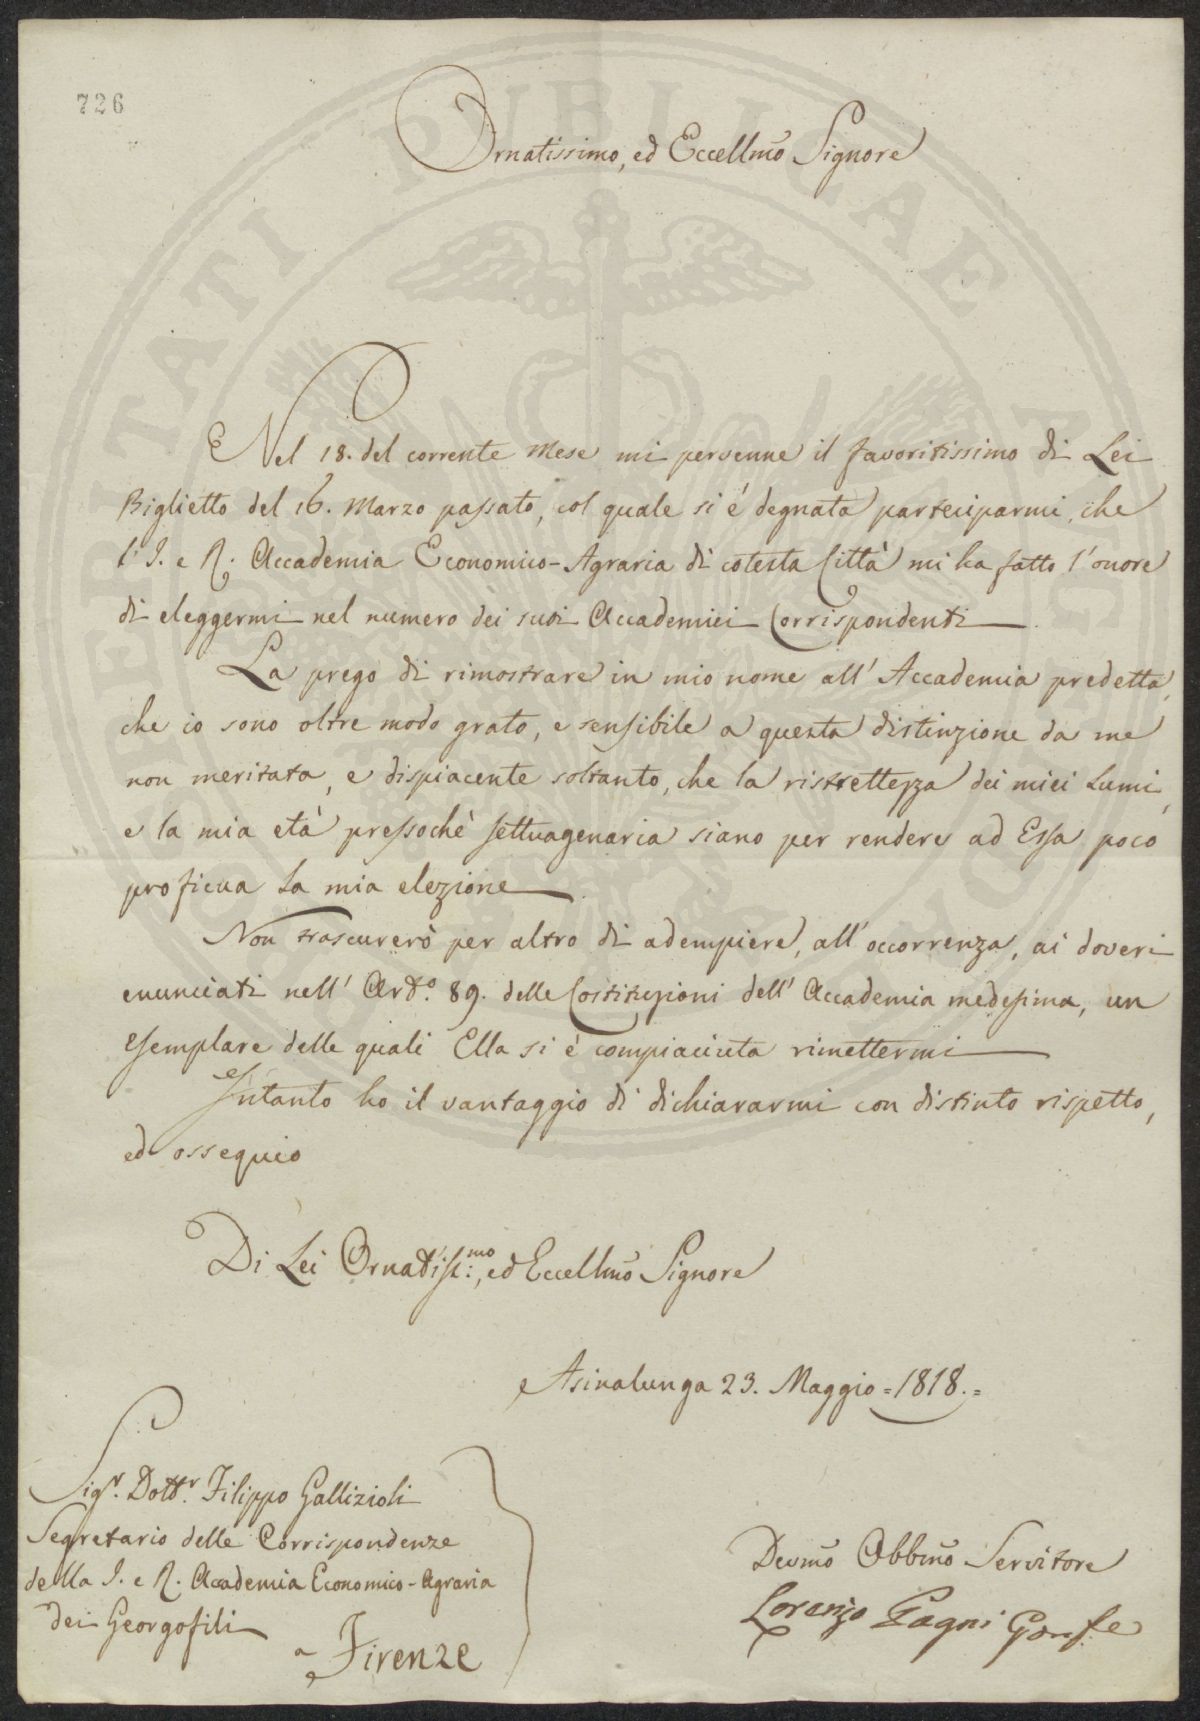 726
Ornatissimo, ed Eccellmo Signore
Nel 18. del corrente Mese mi pervenne il favoritissimo di Lei
Biglietto del 16. Marzo passato, col quale si é degnata parteciparmi, che
l'I. e R. Accademia Economico-Agraria di cotesta Città mi ha fatto l'onore
di eleggermi nel numero dei suoi Accademici Corrispondenti
La prego di rimostrare in mio nome all' Accademia predetta,
che io sono oltre modo grato, e sensibile a questa distinzione da me
non meritata, e dispiacente soltanto, che la ristrettezza dei miei Lumi,
e la mia età pressochè settuagenaria siano per rendere ad Essa poco
proficua la mia elezione
Non trascurerò per altro di adempiere, all' occorrenza, ai doveri
enunciati nell' Art.o 89. delle Costituzioni dell' Accademia medesima, un
esemplare delle quali Ella si è compiaciuta rimettermi
Intanto ho il vantaggio di dichiararmi con distinto rispetto,
ed ossequio
Di Lei Ornatiss:mo, ed Eccellmo Signore
Asinalunga 23. Maggio =1818.=
Sigr. Dottr. Filippo Gallizioli
Segretario delle Corrispondenze
della I. e R. Accademia Economico-Agraria
dei Georgofili
a Firenze
Devmo Obbmo Servitore
Lorenzo Pagni
PUBLICAE